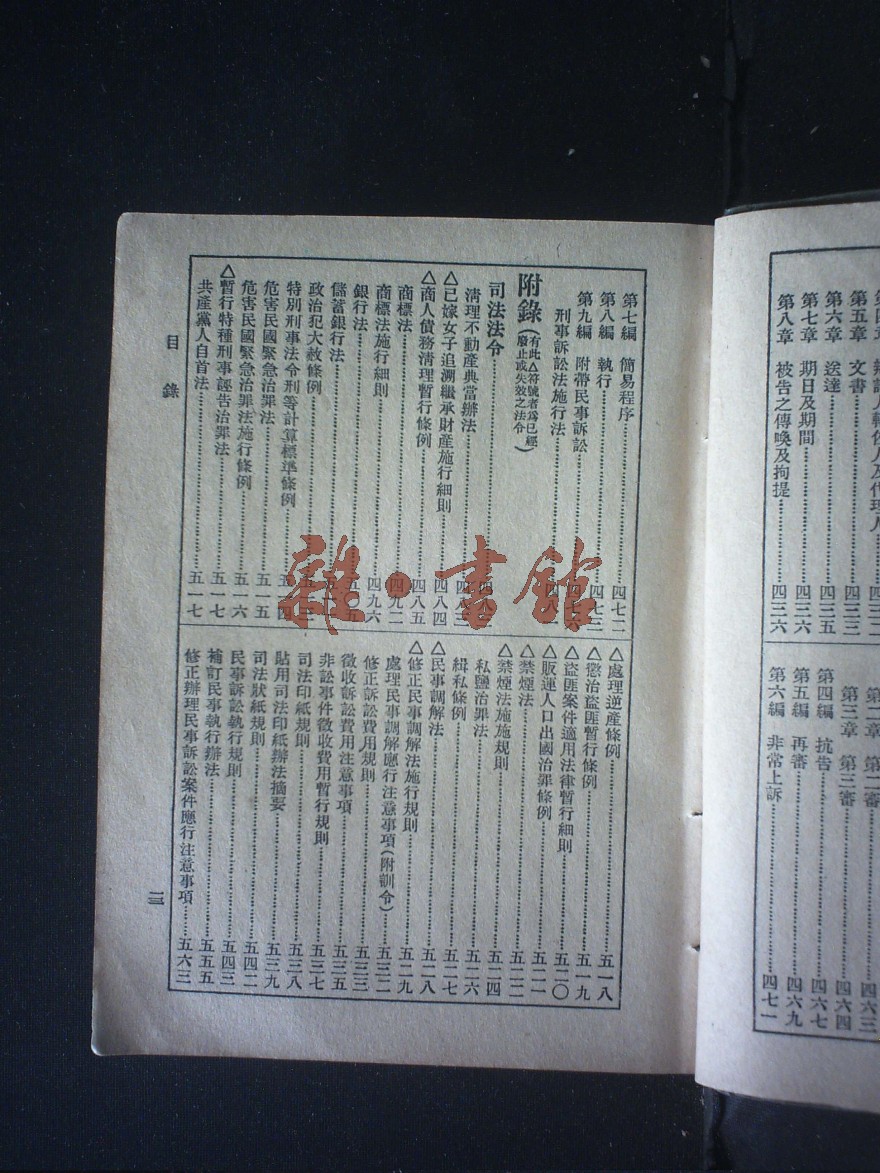 第五章 文書……四三三
第六章 送達……四三五
第七章 期日及期間……四三六
第八章 被告之傳喚及拘提……四三六
第三章 第三審……四六四
第四編 抗告……四六七
第五編 再審……四六九
第六編 非常上訴……四七一
第七編 簡易程序……四七二
第八編 執行……四七三
第九編 附帶民事訴訟……
刑事訴訟法施行法……
附錄(有此△符號者爲已經廢止或失效之法令)
司法法令……
清理不動產典當辦法……四八三
△已嫁女子追溯繼承財產施行細則……四八四
△商人債務清理暫行條例……四八五
商標法……四九二
商標法施行細則……四九六
銀行法……
儲蓄銀行法……
政治犯大赦條例……
特別刑事法令刑等計算標準條例……五一四
危害民國緊急治罪法……五一五
危害民國緊急治罪法施行條例……五一六
△暫行特種刑事誣告治罪法……五一七
共產黨人自首法……五一七
△處理逆產條例……五一八
△懲治盜匪暫行條例……五一九
△盜匪案件適用法律暫行細則……五二〇
△販運人口出國治罪條例……五二一
△禁煙法……五二二
△禁煙法施施規則……五二四
私鹽治罪法……五二六
緝私條例……五二七
△民事調解法……五二八
△修正民事調解法施行規則……五二九
處理民事調解應行注意事項(附訓令)……五三二
修正訴訟費用規則……五三三
徵收訴訟費用注意事項……五三五
非訟事件徵收費用暫行規則……五三七
司法印紙規則……五三八
貼用司法印紙辦法摘要……五三九
司法狀紙規則……五四二
民事訴訟執行規則……五四三
補訂民事執行辦法……五五五
修正辦理民事訴訟案件應行注意事項……五六三
目錄
一三
雜·書館